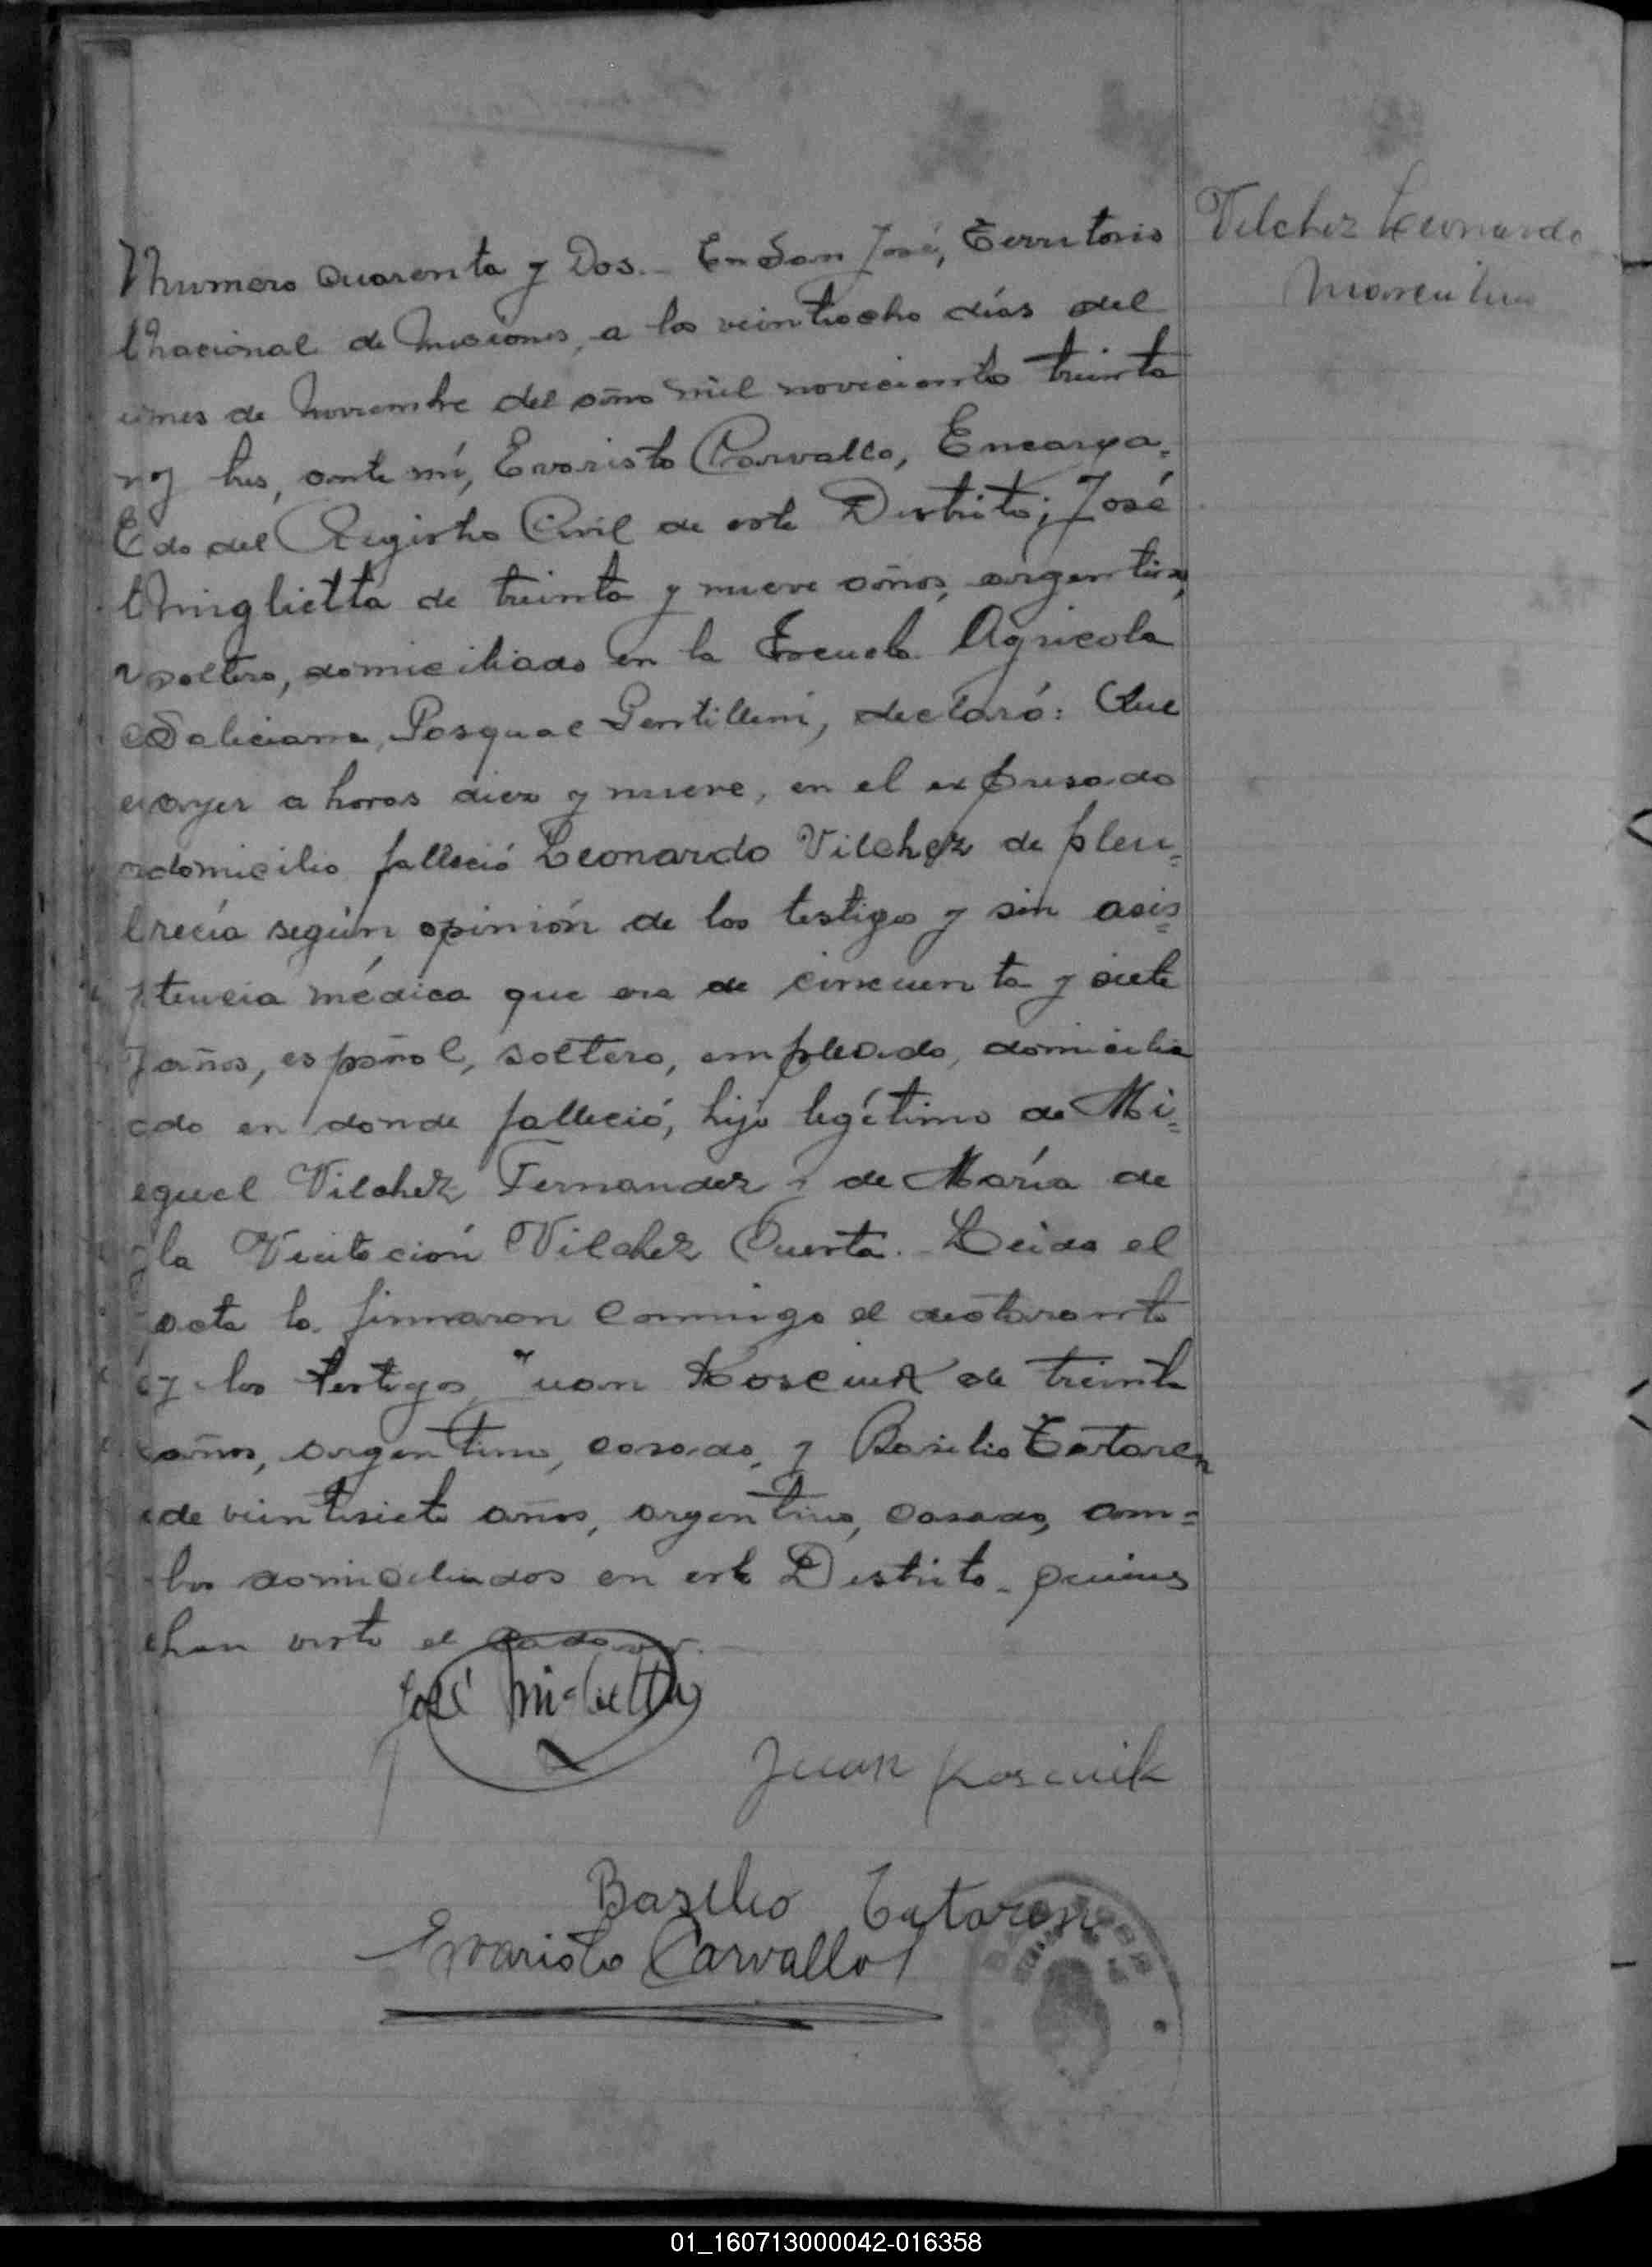 Vilchez Leonardo
Marcelino
Numero Cuarenta y Dos.- En San José, Territorio
Nacional de Misiones, a los veintiocho dias del
mes de Noviembre del año mil novecientos treinta
y tres, ante mí, Evaristo Carvallo, Encarga=
do del Registro Civil de este Distrito; José
Miglietta de treinta y nueve años, argentino,
soltero, domiciliado en la Escuela Agricola
Saleciana, Pascual Gentilleni, declaró: Que
ayer a horas diez y nueve, en el expresado
domicilio falleció Leonardo Vilchez de pleu=
recía según opinión de los testigos y sin asis=
tencia médica que era de cincuenta y siete
años, español, soltero, empleado, domicilia
do en donde falleció, hijo legítimo de Mi=
guel Vilchez Fernandez y de María de
la Vicitación Vilchez Cuerta.- Leida el
acta la firmaron conmigo el declarante
y los testigos, Juan Kosciuk de treinta
años, argentino, casado, y Basilio Tataren
de veintisiete años, argentino, casado, am=
bos domiciliados en este Distrito - quienes
han visto el cadaver.-
José Miglietta
Juan Kosciuk
Basilio Tataren
Evaristo Carvallo
01_160713000042-016358